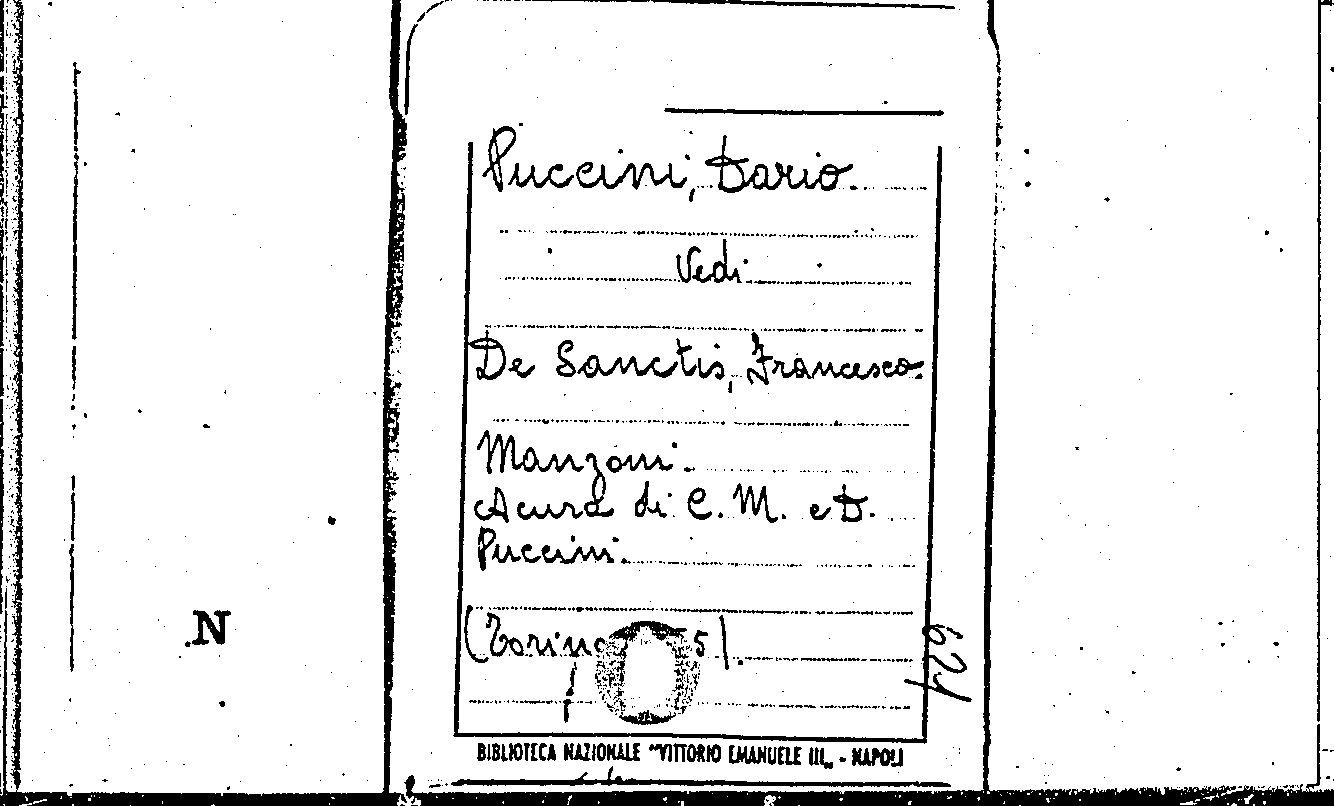 Puccini, Dario.
Vedi
De Sanctis, Francesco.
Manzoni.
A cura di C. M. e D.
Puccini.
(Torino 5).
N
BIBLIOTECA NAZIONALE "VITTORIO EMANUELE III„ - NAPOLI